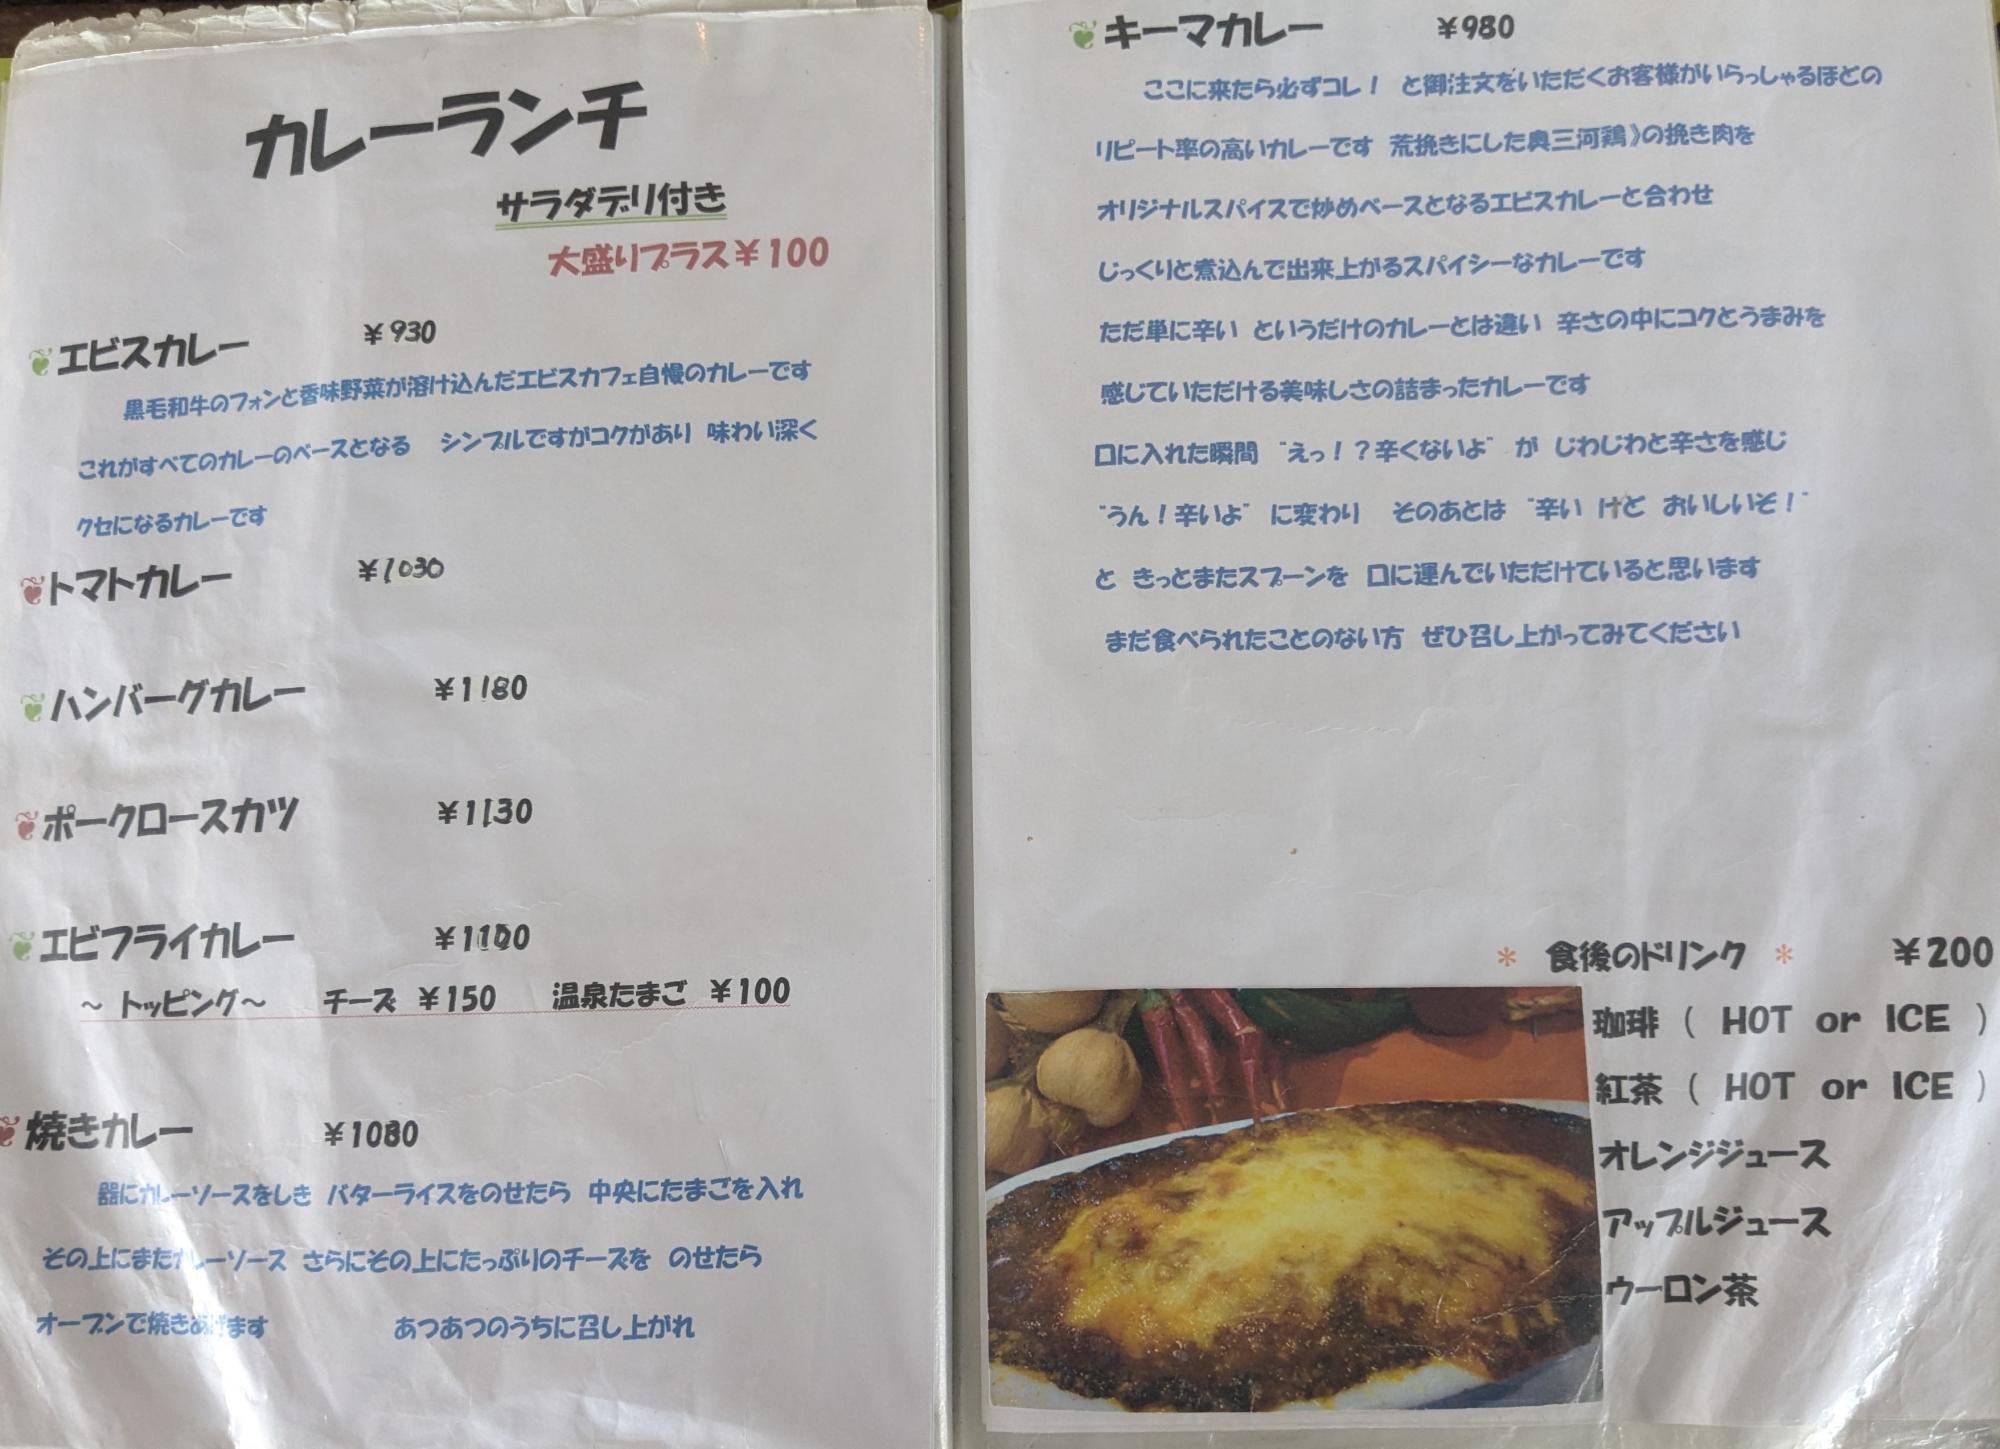 カレーランチ
サラダデリ付き
大盛りプラス￥100
エビスカレー ￥930
黒毛和牛のフォンと香味野菜が溶け込んだエビスカフェ自慢のカレーです
これがすべてのカレーのベースとなる シンプルですがコクがあり 味わい深く
クセになるカレーです
トマトカレー ￥1030
ハンバーグカレー ￥1180
ポークロースカツ ￥1130
エビフライカレー
～ トッピング～ チーズ ￥150 温泉たまご ￥100
焼きカレー ￥1080
器にカレーソースをしき バターライスをのせたら 中央にたまごを入れ
その上にまたカレーソース さらにその上にたっぷりのチーズを のせたら
オーブンで焼きあげます あつあつのうちに召し上がれ
キーマカレー ￥980
ここに来たら必ずコレ！ と御注文をいただくお客様がいらっしゃるほどの
リピート率の高いカレーです 荒挽きにした奥三河鶏》の挽き肉を
オリジナルスパイスで炒めベースとなるエビスカレーと合わせ
じっくりと煮込んで出来上がるスパイシーなカレーです
ただ単に辛い というだけのカレーとは違い 辛さの中にコクとうまみを
感じていただける美味しさの詰まったカレーです
口に入れた瞬間 "えっ！？辛くないよ" が じわじわと辛さを感じ
"うん！辛いよ" に変わり そのあとは "辛い けど おいしいぞ！"
と きっとまたスプーンを 口に運んでいただけていると思います
まだ食べられたことのない方 ぜひ召し上がってみてください
＊ 食後のドリンク ＊ ￥200
珈琲 （ HOT or ICE ）
紅茶 （ HOT or ICE ）
オレンジジュース
アップルジュース
ウーロン茶